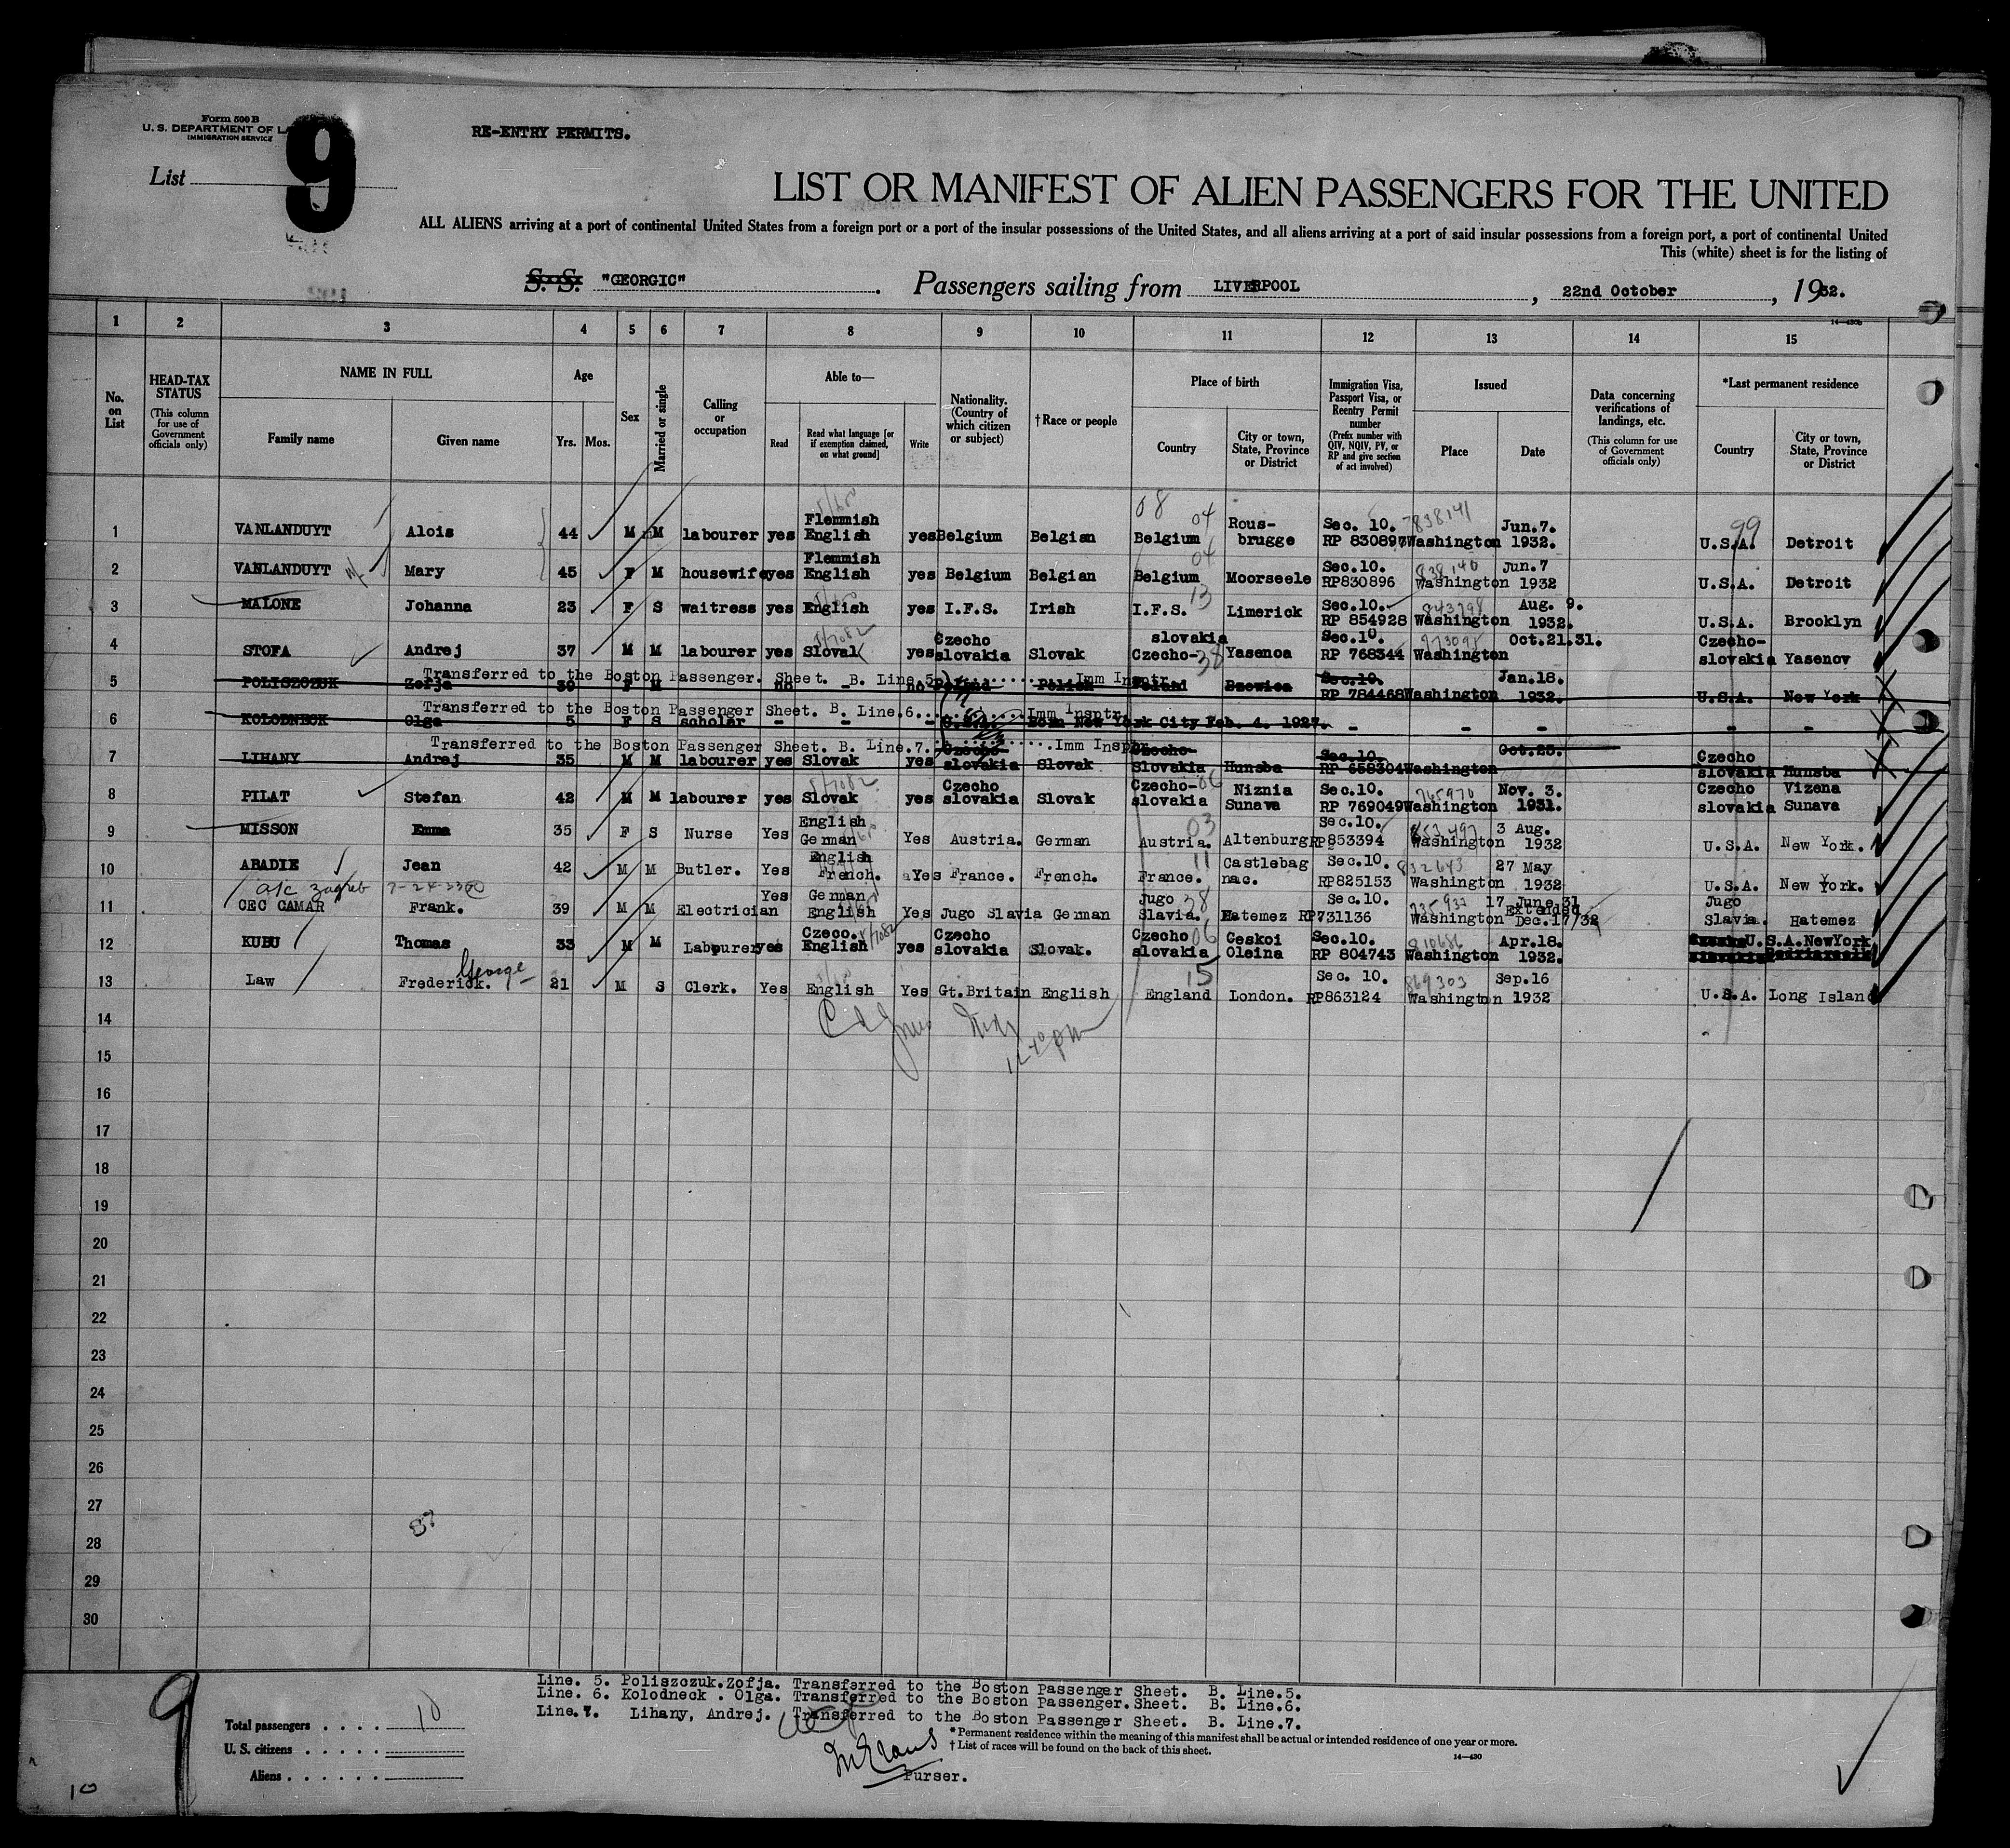 Form 500 B
U. S. DEPARTMENT OF LA
IMMIGRATION SERVICE
9
RE-ENTRY PERMITS.
List
LIST OR MANIFEST OF ALIEN PASSENGERS FOR THE UNITED
ALL ALIENS arriving at a port of continental United States from a foreign port or a port of the insular possessions of the United States, and all aliens arriving at a port of said insular possessions from a foreign port, a port of continental United
This (white) sheet is for the listing of
S. S. "GEORGIC" . Passengers sailing from LIVERPOOL , 22nd October , 1932.
14—430b
1 2 3 4 5 6 7 8 9 10 11 12 13 14 15
No. on List
HEAD-TAX STATUS (This column for use of Government officials only)
NAME IN FULL Family name Given name
Age Yrs. Mos.
Sex
Married or single
Calling or occupation
Able to— Read Read what language [or if exemption claimed, on what ground] Write
Nationality. (Country of which citizen or subject)
†Race or people
Place of birth Country City or town, State, Province or District
Immigration Visa, Passport Visa, or Reentry Permit number (Prefix number with QIV, NQIV, PV, or RP and give section of act involved)
Issued Place Date
Data concerning verifications of landings, etc. (This column for use of Government officials only)
*Last permanent residence Country City or town, State, Province or District
1 VANLANDUYT Alois 44 M M labourer yes Flemmish English yes Belgium Belgian 08 04 Belgium Rous-brugge Sec. 10. RP 830897 838141 Washington Jun.7. 1932. 99 U.S.A. Detroit
2 VANLANDUYT Mary 45 F M housewife yes Flemmish English yes Belgium Belgian 04 Belgium Moorseele Sec.10. RP830896 838140 Washington Jun.7 1932 U.S.A. Detroit
3 MALONE Johanna 23 F S waitress yes English yes I.F.S. Irish 13 I.F.S. Limerick Sec.10. RP 854928 843798 Washington Aug. 9. 1932. U.S.A. Brooklyn
4 STOFA Andrej 37 M M labourer yes Slovak yes Czecho slovakia Slovak slovakia Czecho- 38 Yasenoa Sec.10. RP 768344 Washington Oct.21.31. Czecho-slovakia Yasenov
Transferred to the Boston Passenger. Sheet. B. Line.5. Imm Insptr.
5 POLISZCZUK Zofja 39 F M no - no Poland Polish Poland Bzowica Sec.10. RP 784468 Washington Jan.18. 1932. U.S.A. New York
Transferred to the Boston Passenger Sheet. B. Line.6. Imm Insptr.
6 KOLODNECK Olga 5 F S scholar - - - U.S.A. Born New York City Feb. 4. 1927. - - - - -
Transferred to the Boston Passenger Sheet. B. Line.7. Imm Insptr.
7 LIHANY Andrej 35 M M labourer yes Slovak yes Czecho-slovakia Slovak Czecho-Slovakia Hunsba Sec.10. RP 658304 Washington Oct.23. Czecho slovakia Hunsba
8 PILAT Stefan 42 M M labourer yes Slovak yes Czecho slovakia Slovak Czecho-slovakia 06 Niznia Sunava Sec.10. RP 769049 765970 Washington Nov. 3. 1931. Czecho slovakia Vizena Sunava
9 MISSON Emma 35 F S Nurse Yes English German Yes Austria. German 03 Austria. Altenburg Sec.10. RP853394 853497 Washington 3 Aug. 1932 U.S.A. New York.
10 ABADIE Jean 42 M M Butler. Yes English French. Yes France. French. 11 France. Castlebag nac. Sec.10. RP825153 832643 Washington 27 May 1932 U.S.A. New York.
a/c Zagreb
11 CEC CAMAR Frank. 39 M M Electrician Yes German English Yes Jugo Slavia German Jugo Slavia. 38 Hatemez Sec.10. RP731136 Washington 17 June 31 Extended Dec.17/32 Jugo Slavia. Hatemez
12 KUBU Thomas 33 M M Labourer yes Czeco. English yes Czecho slovakia Slovak. Czecho slovakia 06 Ceskoi Olsina Sec.10. RP 804743 810686 Washington Apr.18. 1932. U.S.A. NewYork
13 Law Frederick. George 21 M S Clerk. Yes English Yes Gt.Britain English 15 England London. Sec. 10. RP863124 869303 Washington Sep.16 1932 U.S.A. Long Island
14
15
16
17
18
19
20
21
22
23
24
25
26
27
28
29
30
Line. 5. Poliszczuk.Zofja. Transferred to the Boston Passenger Sheet. B. Line.5.
Line. 6. Kolodneck . Olga. Transferred to the Boston Passenger.Sheet. B. Line.6.
Line.7. Lihany, Andrej. Transferred to the Boston Passenger Sheet. B. Line.7.
9
Total passengers . . . . 10
U. S. citizens . . . . .
Aliens . . . . . .
* Permanent residence within the meaning of this manifest shall be actual or intended residence of one year or more.
† List of races will be found on the back of this sheet.
14—430
Purser.
10